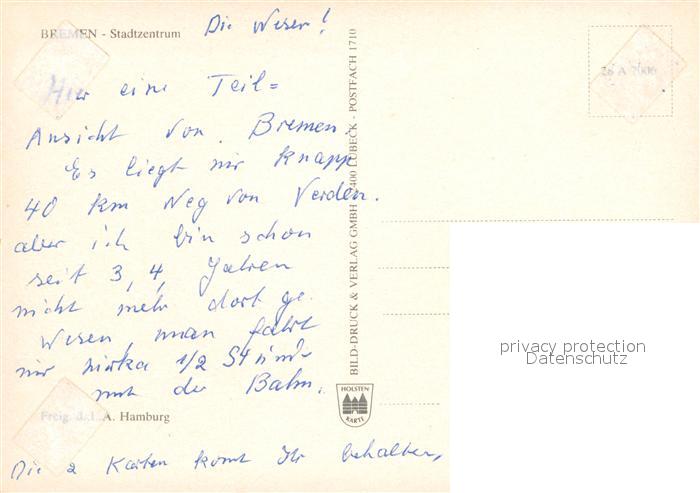 BREMEN - Stadtzentrum
Die Weser!
Hier eine Teil=
Ansicht von Bremen.
Es liegt nur knapp
40 km Weg von Verden.
aber ich bin schon
seit 3, 4, Jahren
nicht mehr dort ge.
wesen, man fährt
nur zirka 1/2 Stunde
mit der Bahn.
Freig. d.L.A. Hamburg
Die 2 Karten könnt Ihr behalten,
BILD-DRUCK & VERLAG GMBH 2400 LÜBECK - POSTFACH 1710
26 A 7006
HOLSTEN
KARTE
privacy protection
Datenschutz